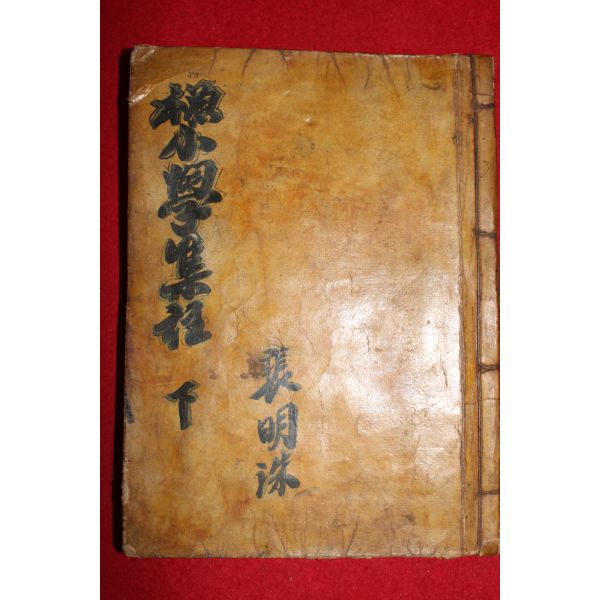 小學集註
下
張明洙